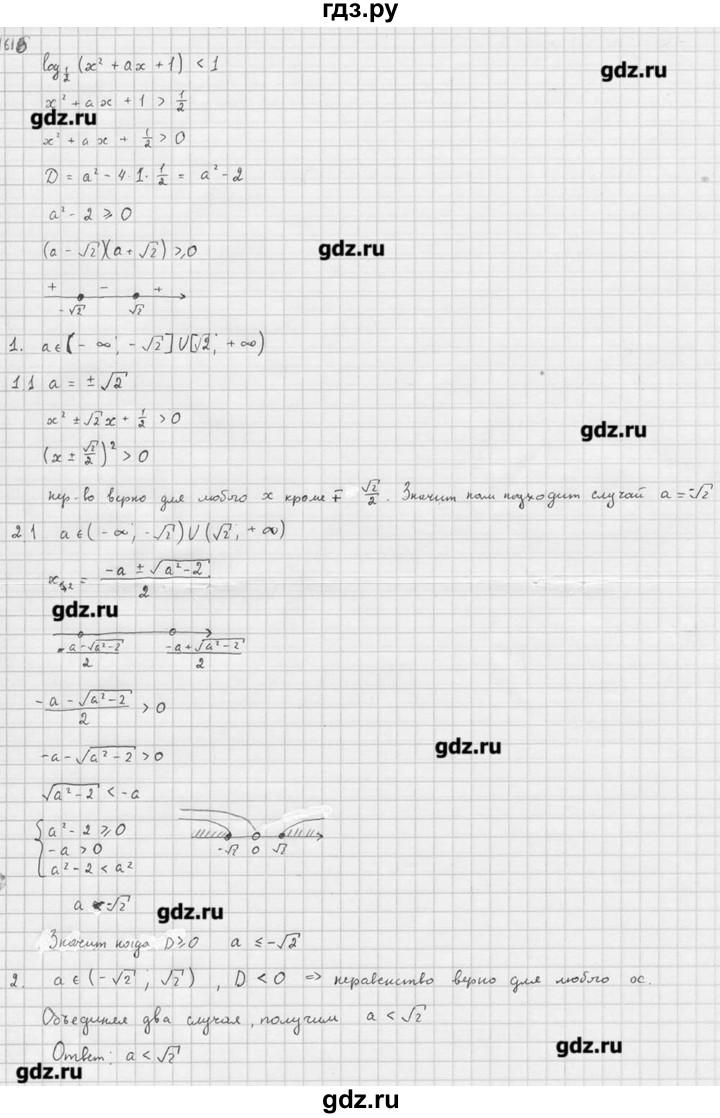 гдз.ру
1616
log_{1/2} (x² + ax + 1) < 1
gdz.ru
x² + ax + 1 > 1/2
gdz.ru
x² + ax + 1/2 > 0
D = a² - 4·1·1/2 = a² - 2
a² - 2 ⩾ 0
(a - √2)(a + √2) ⩾ 0
gdz.ru
+ - +
-√2 √2
1. a ∈ (-∞; -√2] ∪ [√2; +∞)
1.1 a = ±√2
x² ± √2x + 1/2 > 0
gdz.ru
(x ± √2/2)² > 0
нер-во верно для любого x кроме ∓ √2/2. Значит нам подходит случай a = -√2
2.1 a ∈ (-∞; -√2) ∪ (√2; +∞)
x_{1,2} = (-a ± √(a² - 2))/2
gdz.ru
(-a - √(a² - 2))/2 (-a + √(a² - 2))/2
(-a - √(a² - 2))/2 > 0
gdz.ru
-a - √(a² - 2) > 0
√(a² - 2) < -a
{ a² - 2 ⩾ 0
-a > 0
a² - 2 < a²
-√2 0 √2
a < -√2
gdz.ru
Значит когда D ⩾ 0 a ≤ -√2
2. a ∈ (-√2; √2), D < 0 => неравенство верно для любого x.
Объединяя два случая, получим a < √2
Ответ: a < √2
gdz.ru
gdz.ru
gdz.ru